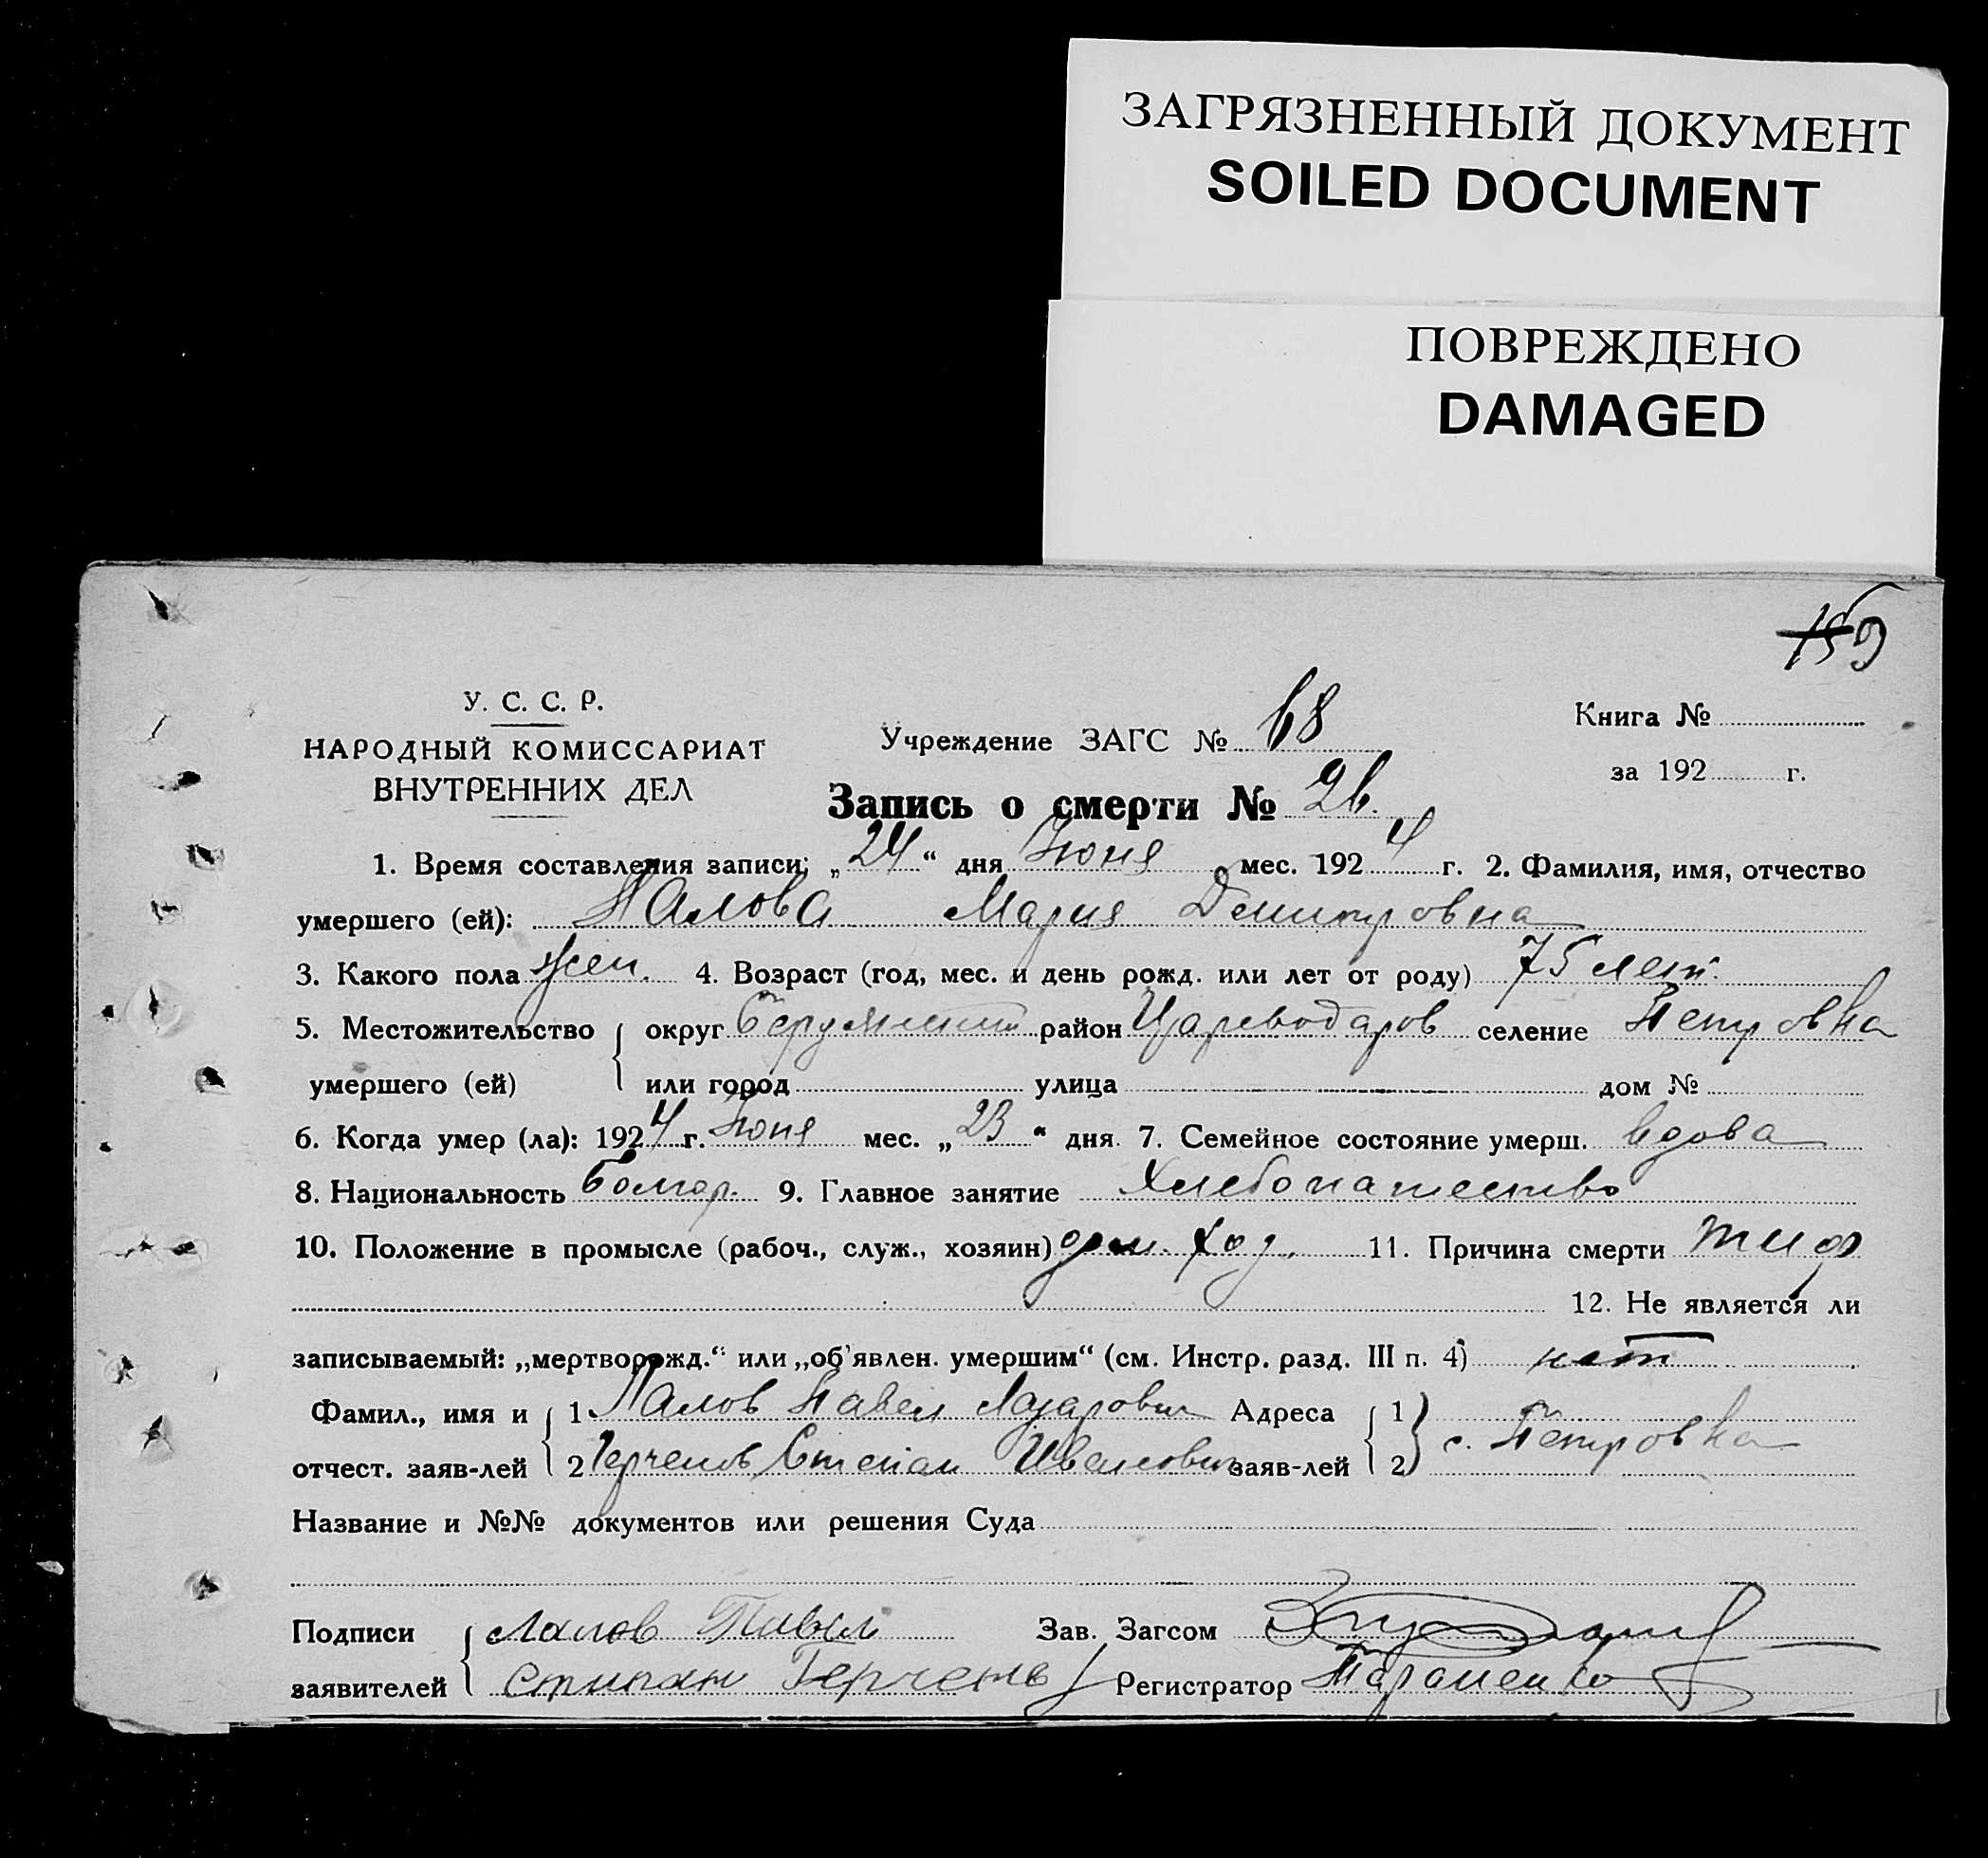 ЗАГРЯЗНЕННЫЙ ДОКУМЕНТ
SOILED DOCUMENT
ПОВРЕЖДЕНО
DAMAGED
У. С. С. Р.
НАРОДНЫЙ КОМИССАРИАТ
ВНУТРЕННИХ ДЕЛ
Учреждение ЗАГС № 68
Книга №
за 192 г.
Запись о смерти № 26.
1. Время составления записи: „24“ дня Июня мес. 1924 г. 2. Фамилия, имя, отчество
умершего (ей): Палова Мария Димитровна
3. Какого пола жен. 4. Возраст (год, мес. и день рожд. или лет от роду) 75 лет.
5. Местожительство округ район Цареводаров селение Петровка
умершего (ей) или город улица дом №
6. Когда умер (ла): 1924 г. Июня мес. „23“ дня. 7. Семейное состояние умерш. вдова
8. Национальность болгар. 9. Главное занятие Хлебопашество
10. Положение в промысле (рабоч., служ., хозяин) 11. Причина смерти тиф
12. Не является ли
записываемый: „мертворожд.“ или „об'явлен. умершим“ (см. Инстр. разд. III п. 4) нет
Фамил., имя и 1 Палов Павел Лазарович Адреса 1
отчест. заяв-лей 2 Степан Иванович заяв-лей 2 с. Петровка
Название и №№ документов или решения Суда
Подписи Зав. Загсом
заявителей Регистратор